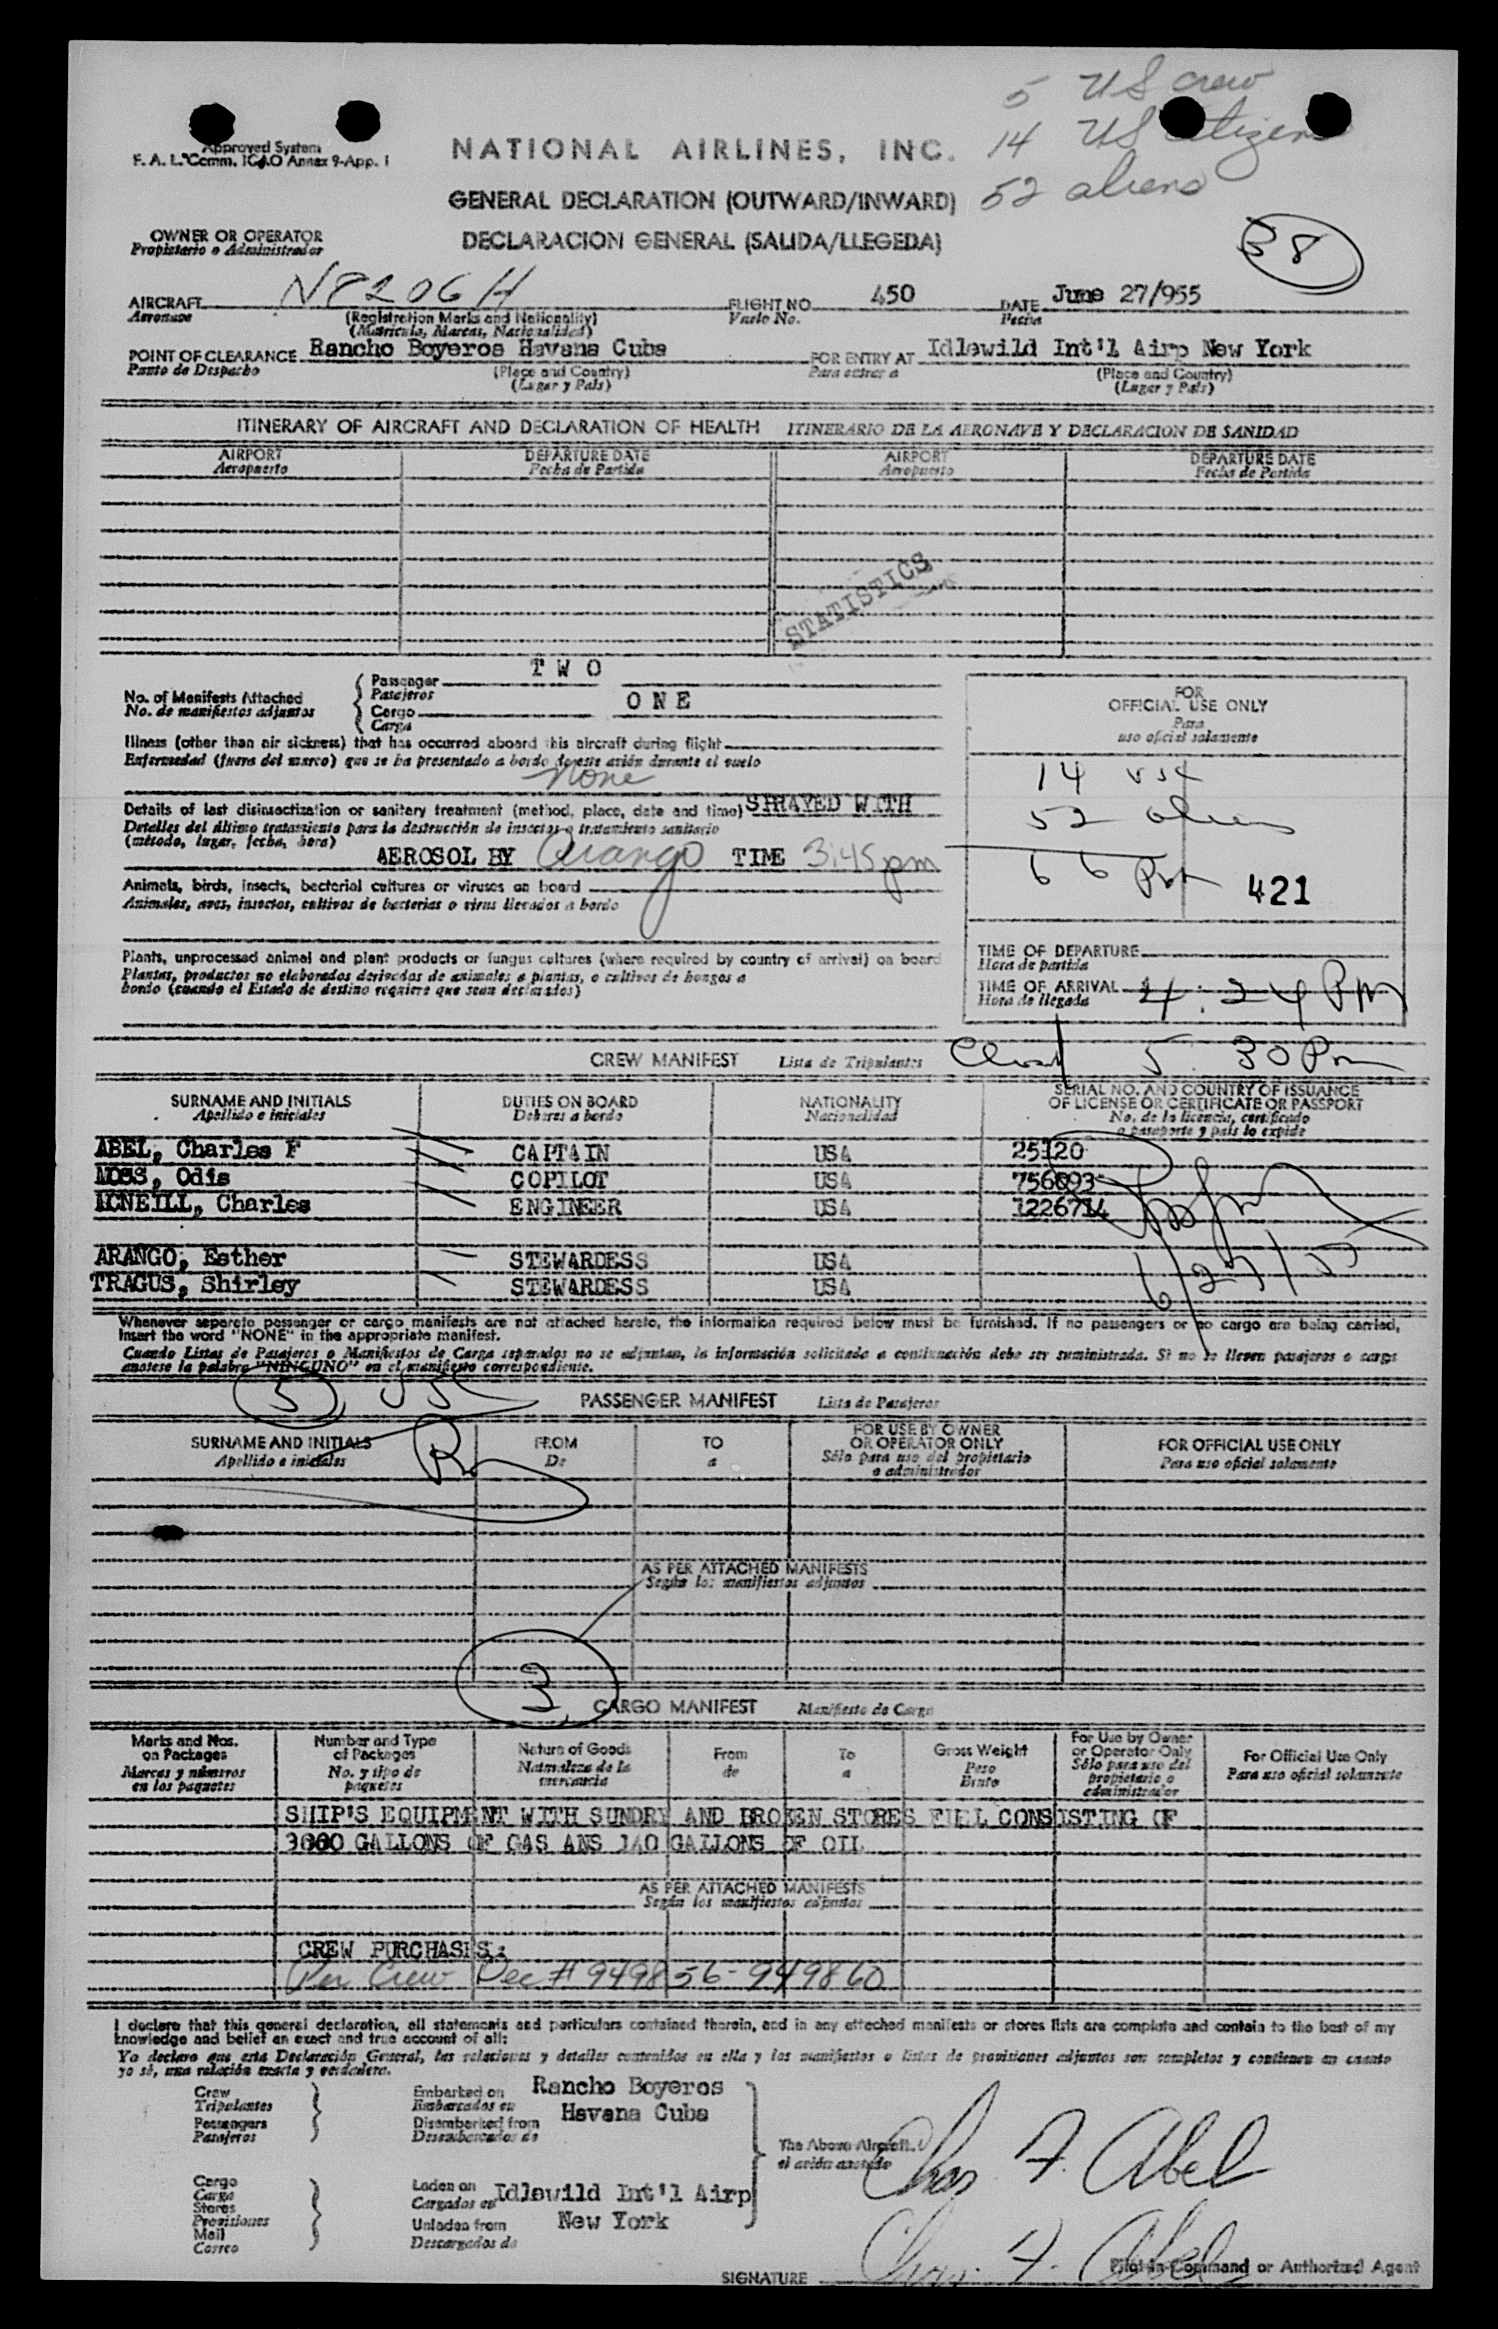 5 US crew
14 US citizens
52 aliens
Approved System
F. A. L. Comm. ICAO Annex 9-App. 1
NATIONAL AIRLINES, INC.
GENERAL DECLARATION (OUTWARD/INWARD)
DECLARACION GENERAL (SALIDA/LLEGEDA)
38
OWNER OR OPERATOR
Propietario o Administrador
AIRCRAFT N8206H FLIGHT NO. 450 DATE June 27/955
Aeronave (Registration Marks and Nationality) Vuelo No. Fecha
(Matricula, Marcas, Nacionalidad)
POINT OF CLEARANCE Rancho Boyeros Havana Cuba FOR ENTRY AT Idlewild Int'l Airp New York
Punto de Despacho (Place and Country) Para entrar a (Place and Country)
(Lugar y Pais) (Lugar y Pais)
ITINERARY OF AIRCRAFT AND DECLARATION OF HEALTH ITINERARIO DE LA AERONAVE Y DECLARACION DE SANIDAD
AIRPORT DEPARTURE DATE AIRPORT DEPARTURE DATE
Aeropuerto Fecha de Partida Aeropuerto Fecha de Partida
STATISTICS
No. of Manifests Attached Passenger TWO
No. de manifiestos adjuntos Pasajeros
Cargo ONE
Carga
Illness (other than air sickness) that has occurred aboard this aircraft during flight
Enfermedad (fuera del mareo) que se ha presentado a bordo de este avión durante el vuelo
None
Details of last disinsectization or sanitary treatment (method, place, date and time) SPRAYED WITH
Detalles del último tratamiento para la destrucción de insectos o tratamiento sanitario
(método, lugar, fecha, hora)
AEROSOL BY Arango TIME 3:45 pm
Animals, birds, insects, bacterial cultures or viruses on board
Animales, aves, insectos, cultivos de bacterias o virus llevados a bordo
Plants, unprocessed animal and plant products or fungus cultures (where required by country of arrival) on board
Plantas, productos no elaborados derivados de animales o plantas, o cultivos de hongos a
bordo (cuando el Estado de destino requiere que sean declarados)
FOR
OFFICIAL USE ONLY
Para
uso oficial solamente
14 USC
52 aliens
66 421
TIME OF DEPARTURE
Hora de partida
TIME OF ARRIVAL 4:24 PM
Hora de llegada
CREW MANIFEST Lista de Tripulantes 5 30 Pm
SURNAME AND INITIALS DUTIES ON BOARD NATIONALITY SERIAL NO. AND COUNTRY OF ISSUANCE
Apellido e iniciales Deberes a bordo Nacionalidad OF LICENSE OR CERTIFICATE OR PASSPORT
No. de la licencia, certificado
o pasaporte y pais lo expide
ABEL, Charles F CAPTAIN USA 25120
MOSS, Odis COPILOT USA 756693
MCNEILL, Charles ENGINEER USA 1226714
ARANGO, Esther STEWARDESS USA
TRAGUS, Shirley STEWARDESS USA
6/27/55
Whenever separate passenger or cargo manifests are not attached hereto, the information required below must be furnished. If no passengers or no cargo are being carried,
insert the word "NONE" in the appropriate manifest.
Cuando Listas de Pasajeros o Manifiestos de Carga separados no se adjuntan, la información solicitada a continuación debe ser suministrada. Si no se llevan pasajeros o carga
anotese la palabra "NINGUNO" en el manifiesto correspondiente.
5
PASSENGER MANIFEST Lista de Pasajeros
SURNAME AND INITIALS FROM TO FOR USE BY OWNER FOR OFFICIAL USE ONLY
Apellido e iniciales De a OR OPERATOR ONLY Para uso oficial solamente
Sólo para uso del propietario
o administrador
AS PER ATTACHED MANIFESTS
Según los manifiestos adjuntos
3
CARGO MANIFEST Manifiesto de Carga
Marks and Nos. Number and Type Nature of Goods From To Gross Weight For Use by Owner For Official Use Only
on Packages of Packages Naturaleza de la de a Peso or Operator Only Para uso oficial solamente
Marcas y números No. y tipo de mercancia Bruto Sólo para uso del
en los paquetes paquetes propietario o
administrador
SHIP'S EQUIPMENT WITH SUNDRY AND BROKEN STORES FUEL CONSISTING OF
3000 GALLONS OF GAS ANS 140 GALLONS OF OIL
AS PER ATTACHED MANIFESTS
Según los manifiestos adjuntos
CREW PURCHASES:
Per Crew Dec # 949856-949860
I declare that this general declaration, all statements and particulars contained therein, and in any attached manifests or stores lists are complete and contain to the best of my
knowledge and belief an exact and true account of all:
Yo declaro que esta Declaración General, las relaciones y detalles contenidos en ella y los manifiestos o listas de provisiones adjuntos son completos y contienen en cuanto
yo sé, una relación exacta y verdadera.
Crew Embarked on Rancho Boyeros
Tripulantes Embarcados en
Passengers Disembarked from Havana Cuba
Pasajeros Desembarcados de
The Above Aircraft.
el avión anotado
Chas F. Abel
Cargo Laden on Idlewild Int'l Airp
Carga Cargados en
Stores
Provisiones Unladen from New York
Mail Descargados de
Correo
SIGNATURE Chas. F. Abel
Pilot-in-Command or Authorized Agent